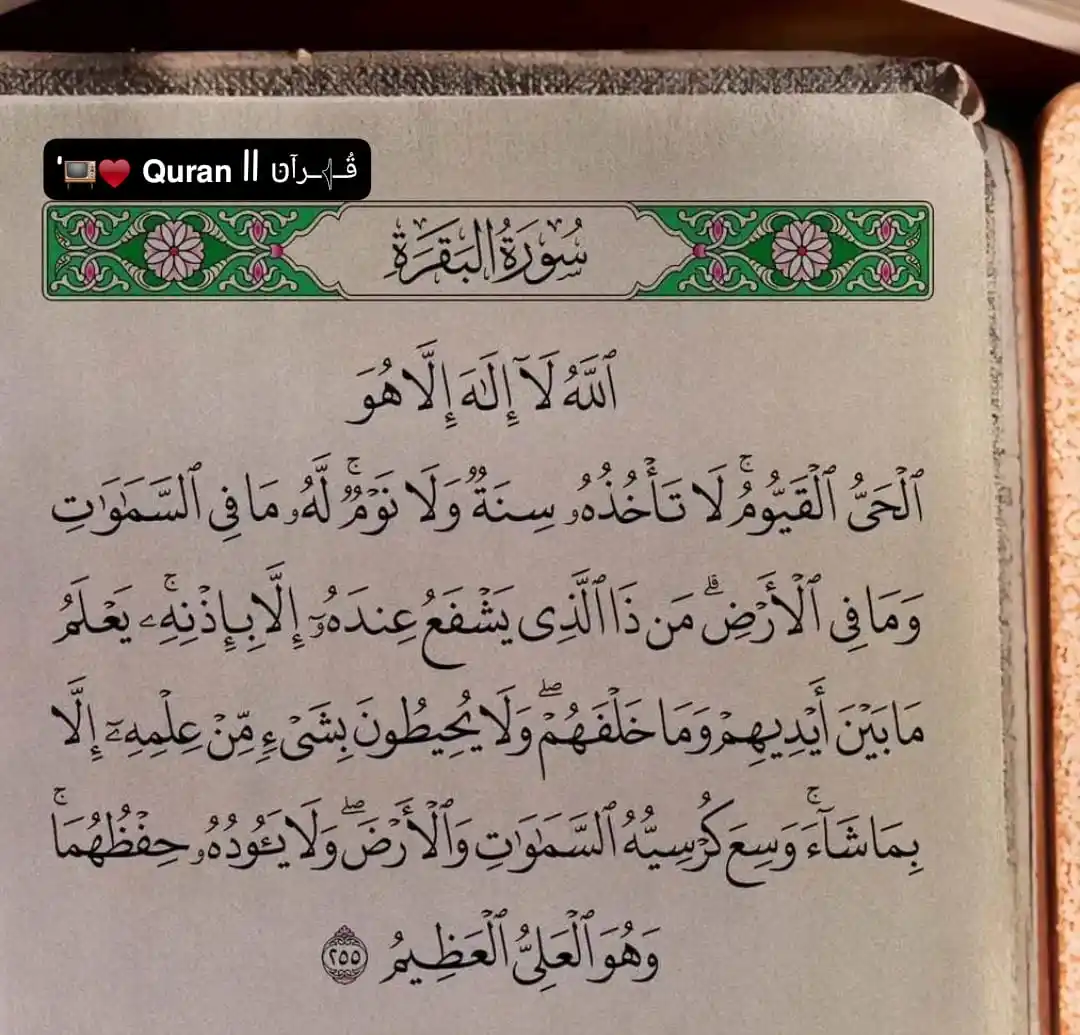 '📺♥️ Quran || قُـ﴾ـرآن
سُورَةُ البَقَرَةِ
ٱللَّهُ لَآ إِلَٰهَ إِلَّا هُوَ
ٱلْحَىُّ ٱلْقَيُّومُ ۚ لَا تَأْخُذُهُۥ سِنَةٌ وَلَا نَوْمٌ ۚ لَّهُۥ مَا فِى ٱلسَّمَٰوَٰتِ
وَمَا فِى ٱلْأَرْضِ ۗ مَن ذَا ٱلَّذِى يَشْفَعُ عِندَهُۥٓ إِلَّا بِإِذْنِهِۦ ۚ يَعْلَمُ
مَا بَيْنَ أَيْدِيهِمْ وَمَا خَلْفَهُمْ ۖ وَلَا يُحِيطُونَ بِشَىْءٍ مِّنْ عِلْمِهِۦٓ إِلَّا
بِمَا شَآءَ ۚ وَسِعَ كُرْسِيُّهُ ٱلسَّمَٰوَٰتِ وَٱلْأَرْضَ ۖ وَلَا يَـُٔودُهُۥ حِفْظُهُمَا ۚ
وَهُوَ ٱلْعَلِىُّ ٱلْعَظِيمُ ٢٥٥